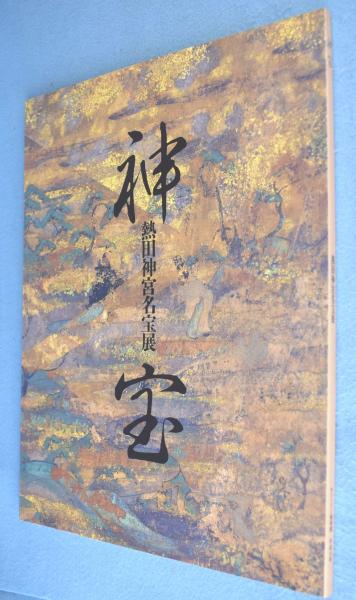 神宝
熱田神宮名宝展